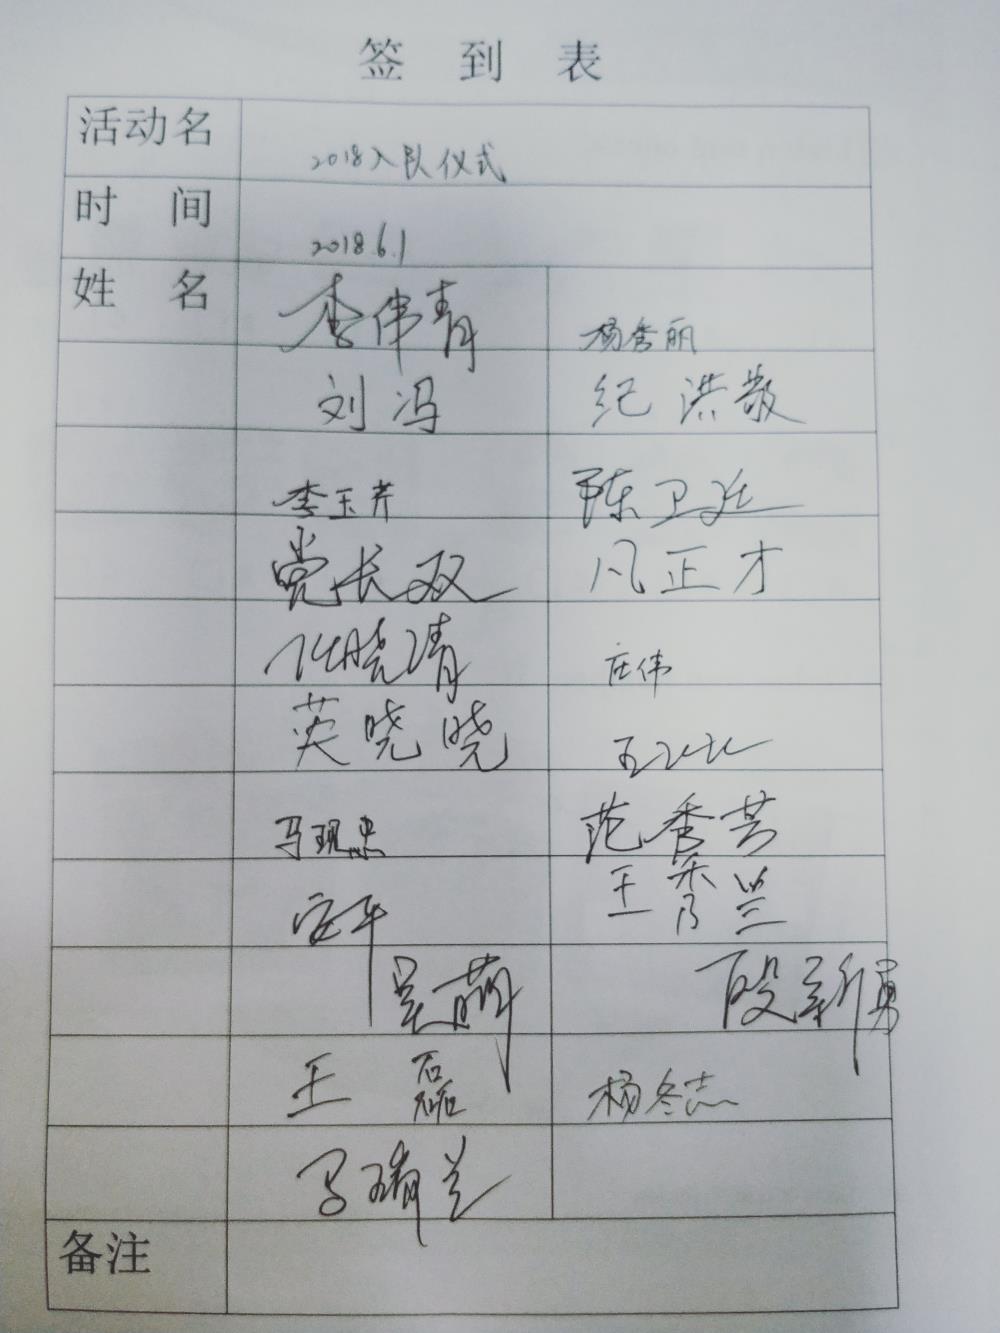 签 到 表
活动名 2018入队仪式
时 间 2018.6.1
姓 名 李伟青 杨秀丽
刘冯 纪洪敬
李玉芹 陈卫廷
党长双 凡正才
晓清 庄伟
英晓晓 王
马现忠 范香芸
安平 王秀兰
吴萌 殷新勇
王磊 杨冬志
马瑞兰
备注